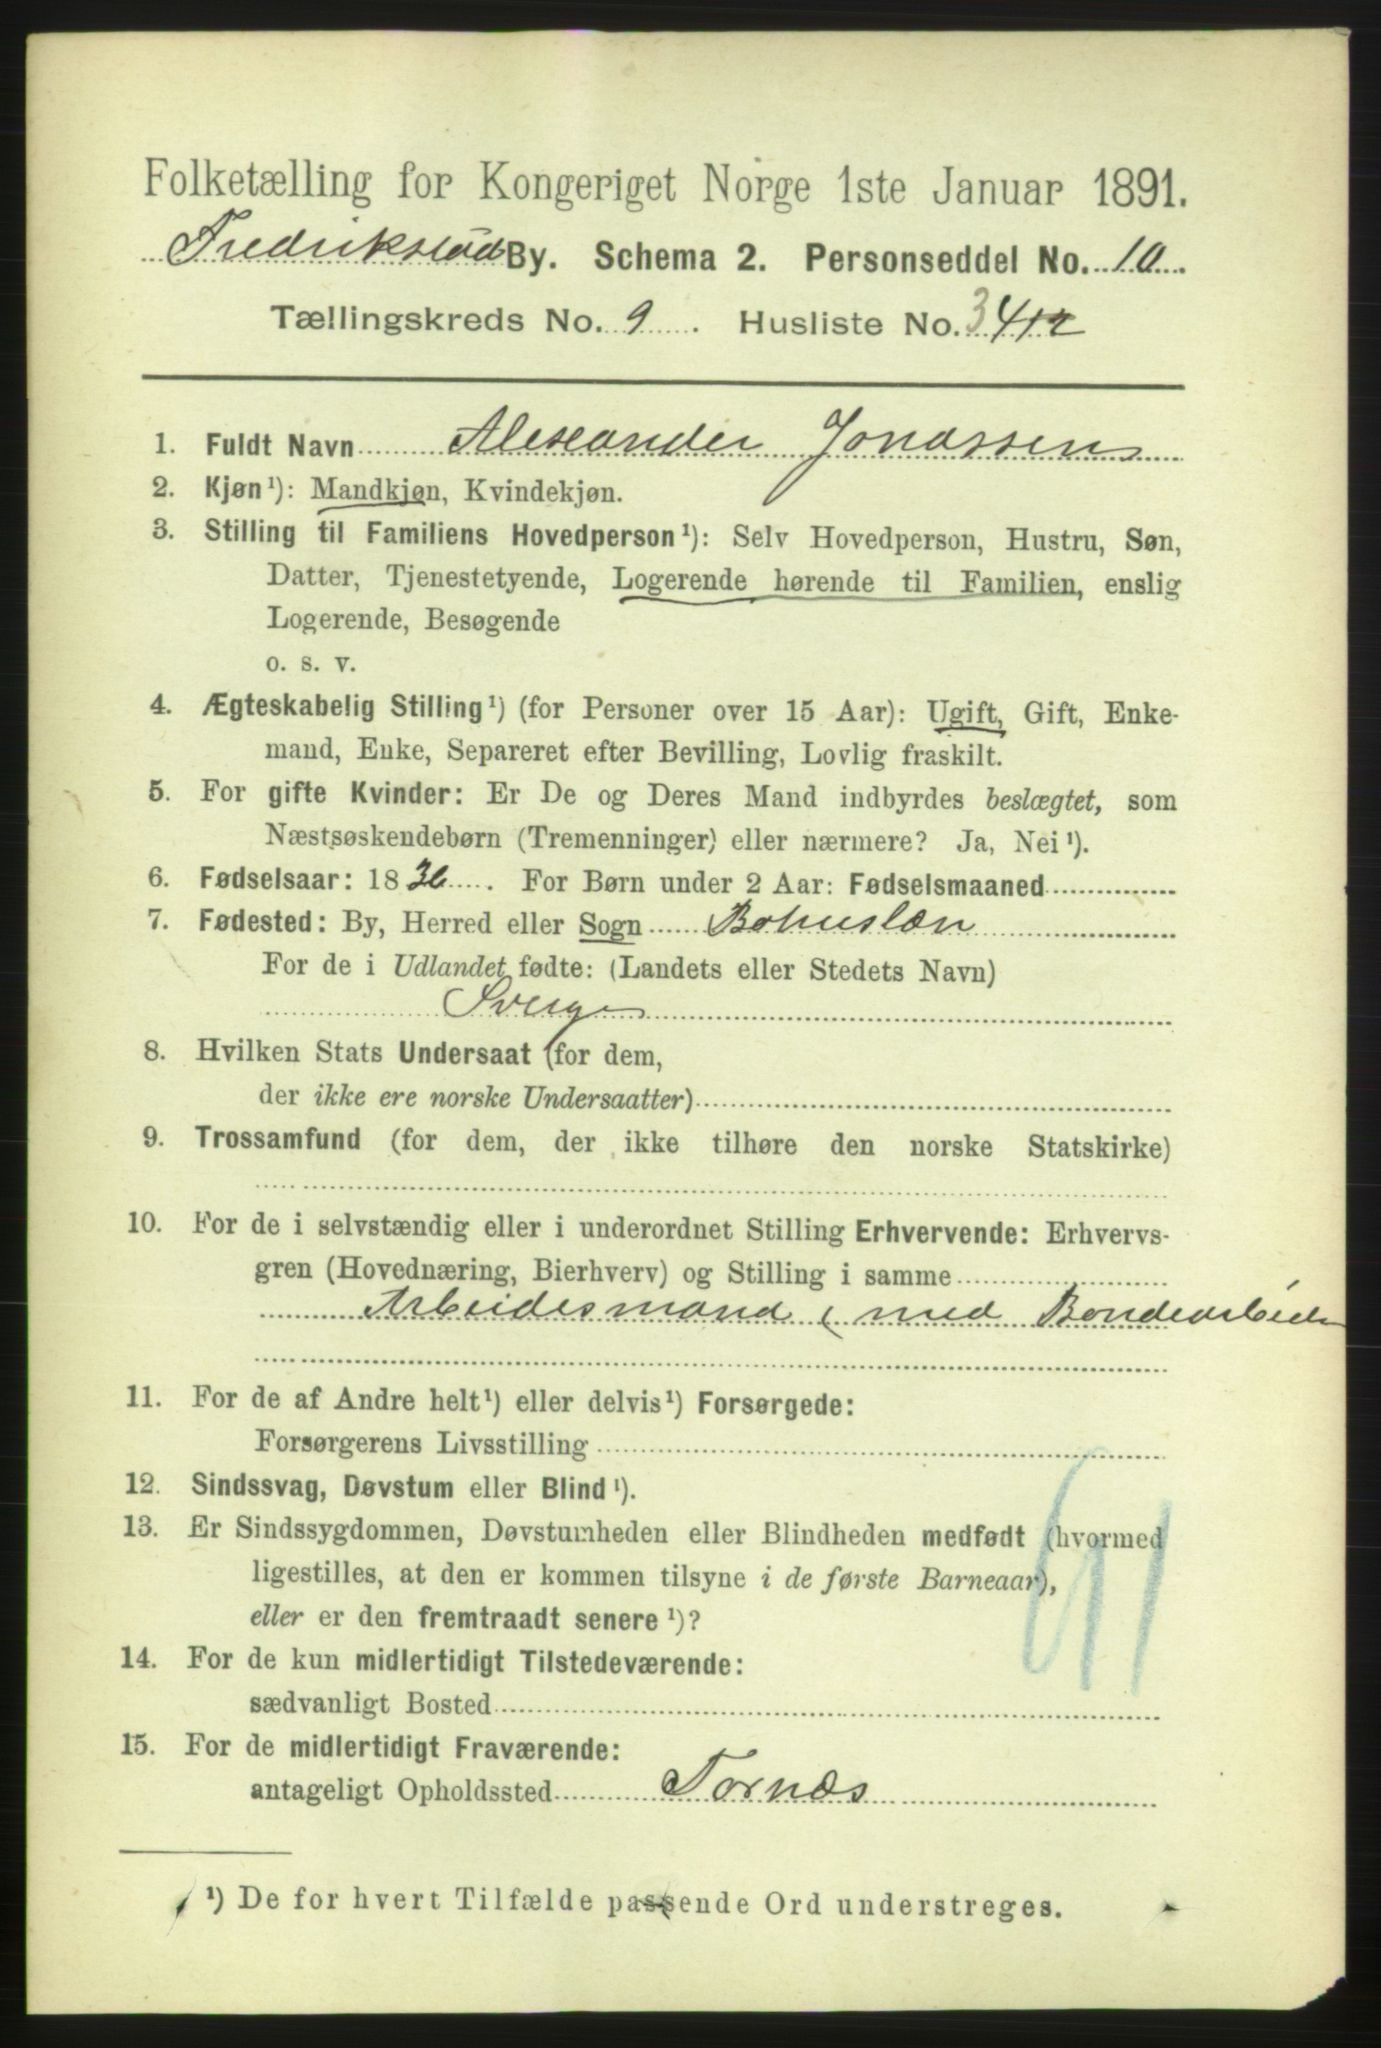 Folketælling for Kongeriget Norge 1ste Januar 1891.
Fredrikstad By. Schema 2. Personseddel No. 10.
Tællingskreds No. 9. Husliste No. 3
1. Fuldt Navn Alexander Jonassen
2. Kjøn¹): Mandkjøn, Kvindekjøn.
3. Stilling til Familiens Hovedperson¹): Selv Hovedperson, Hustru, Søn,
Datter, Tjenestetyende, Logerende hørende til Familien, enslig
Logerende, Besøgende
o. s. v.
4. Ægteskabelig Stilling¹) (for Personer over 15 Aar): Ugift, Gift, Enke-
mand, Enke, Separeret efter Bevilling, Lovlig fraskilt.
5. For gifte Kvinder: Er De og Deres Mand indbyrdes beslægtet, som
Næstsøskendebørn (Tremenninger) eller nærmere? Ja, Nei¹).
6. Fødselsaar: 1836. For Børn under 2 Aar: Fødselsmaaned
7. Fødested: By, Herred eller Sogn Bohuslæn
For de i Udlandet fødte: (Landets eller Stedets Navn)
Sverge
8. Hvilken Stats Undersaat (for dem,
der ikke ere norske Undersaatter)
9. Trossamfund (for dem, der ikke tilhøre den norske Statskirke)
10. For de i selvstændig eller i underordnet Stilling Erhvervende: Erhvervs-
gren (Hovednæring, Bierhverv) og Stilling i samme
Arbeidesmand (med Bondearbeide
11. For de af Andre helt¹) eller delvis¹) Forsørgede:
Forsørgerens Livsstilling
12. Sindssvag, Døvstum eller Blind¹).
13. Er Sindssygdommen, Døvstumheden eller Blindheden medfødt (hvormed
ligestilles, at den er kommen tilsyne i de første Barneaar),
eller er den fremtraadt senere¹)?
14. For de kun midlertidigt Tilstedeværende:
sædvanligt Bosted
15. For de midlertidigt Fraværende:
antageligt Opholdssted Tornæs
¹) De for hvert Tilfælde passende Ord understreges.